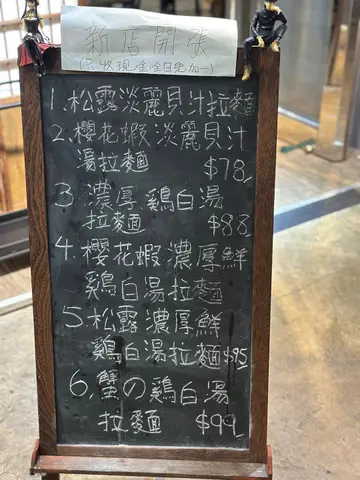 新店開張
(只收現金全日免加一)
1.松露淡麗貝汁拉麵
2.櫻花蝦淡麗貝汁
湯拉麵 $78
3.濃厚鷄白湯
拉麵 $88
4.櫻花蝦濃厚鮮
鷄白湯拉麵
5.松露濃厚鮮
鷄白湯拉麵$95
6.蟹の鷄白湯
拉麵 $99